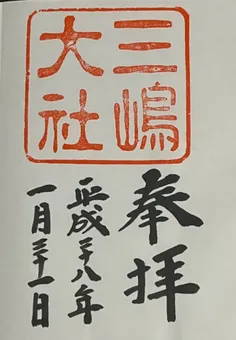 三嶋
大社
奉拝
平成二十八年
一月三十一日